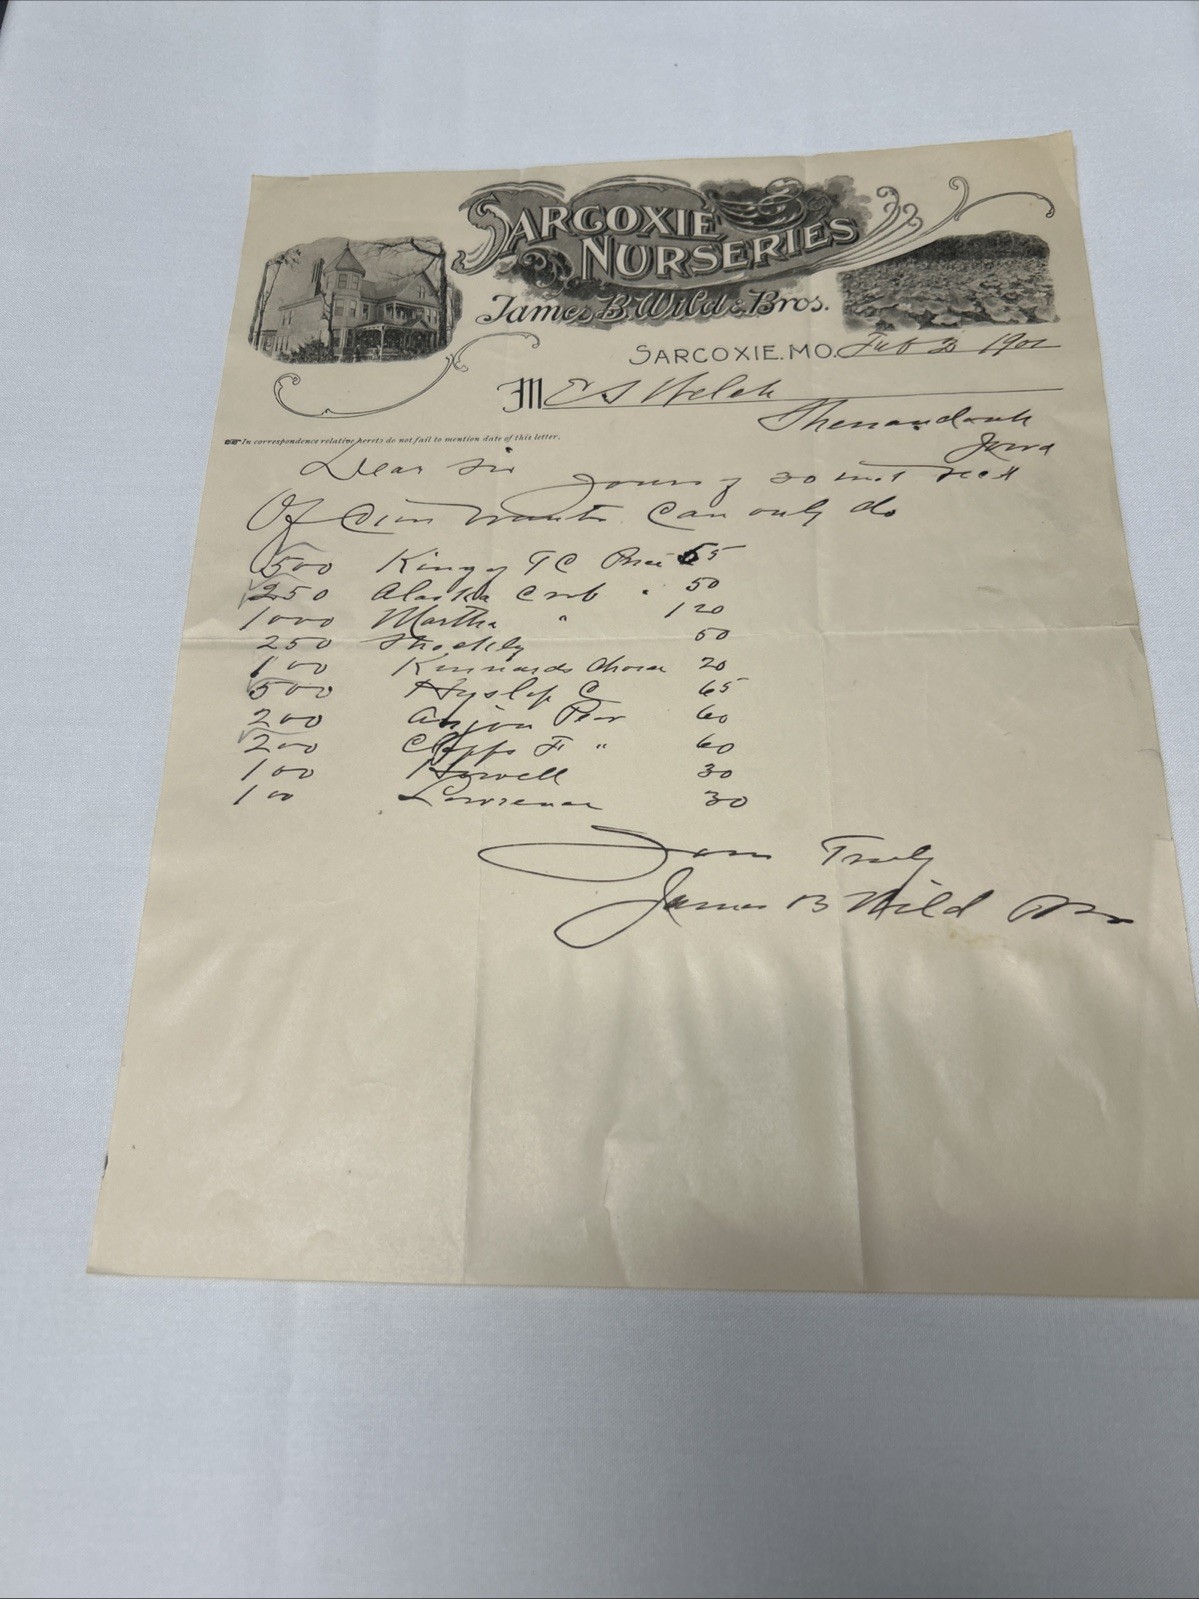 SARCOXIE
NURSERIES
James B. Wild & Bros.
SARCOXIE. MO. Feb 3 1902
M E S Welch
Shenandoah
Iowa
In correspondence relative hereto do not fail to mention date of this letter.
Dear Sir
Yours of 30 inst recd
Of Your wants Can only do
500 King of T C Price 65
250 Alaska Crab " 50
1000 Martha " 120
250 Shockly 50
100 Kinnards Choice 20
500 Hyslop C 65
200 Anjou Pear 60
200 Clapps F " 60
100 Howell 30
100 Lawrence 30
Yours Truly
James B Wild Bros